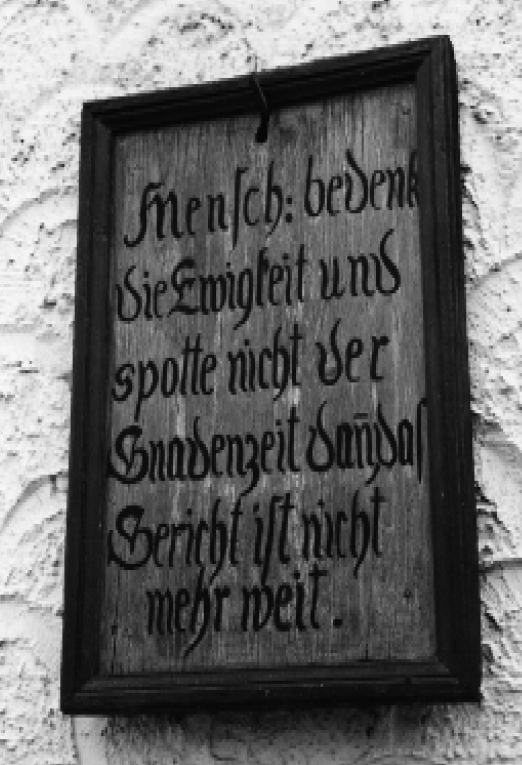 Mensch: bedenk
die Ewigkeit und
spotte nicht der
Gnadenzeit dan̄ das
Gericht ist nicht
mehr weit.